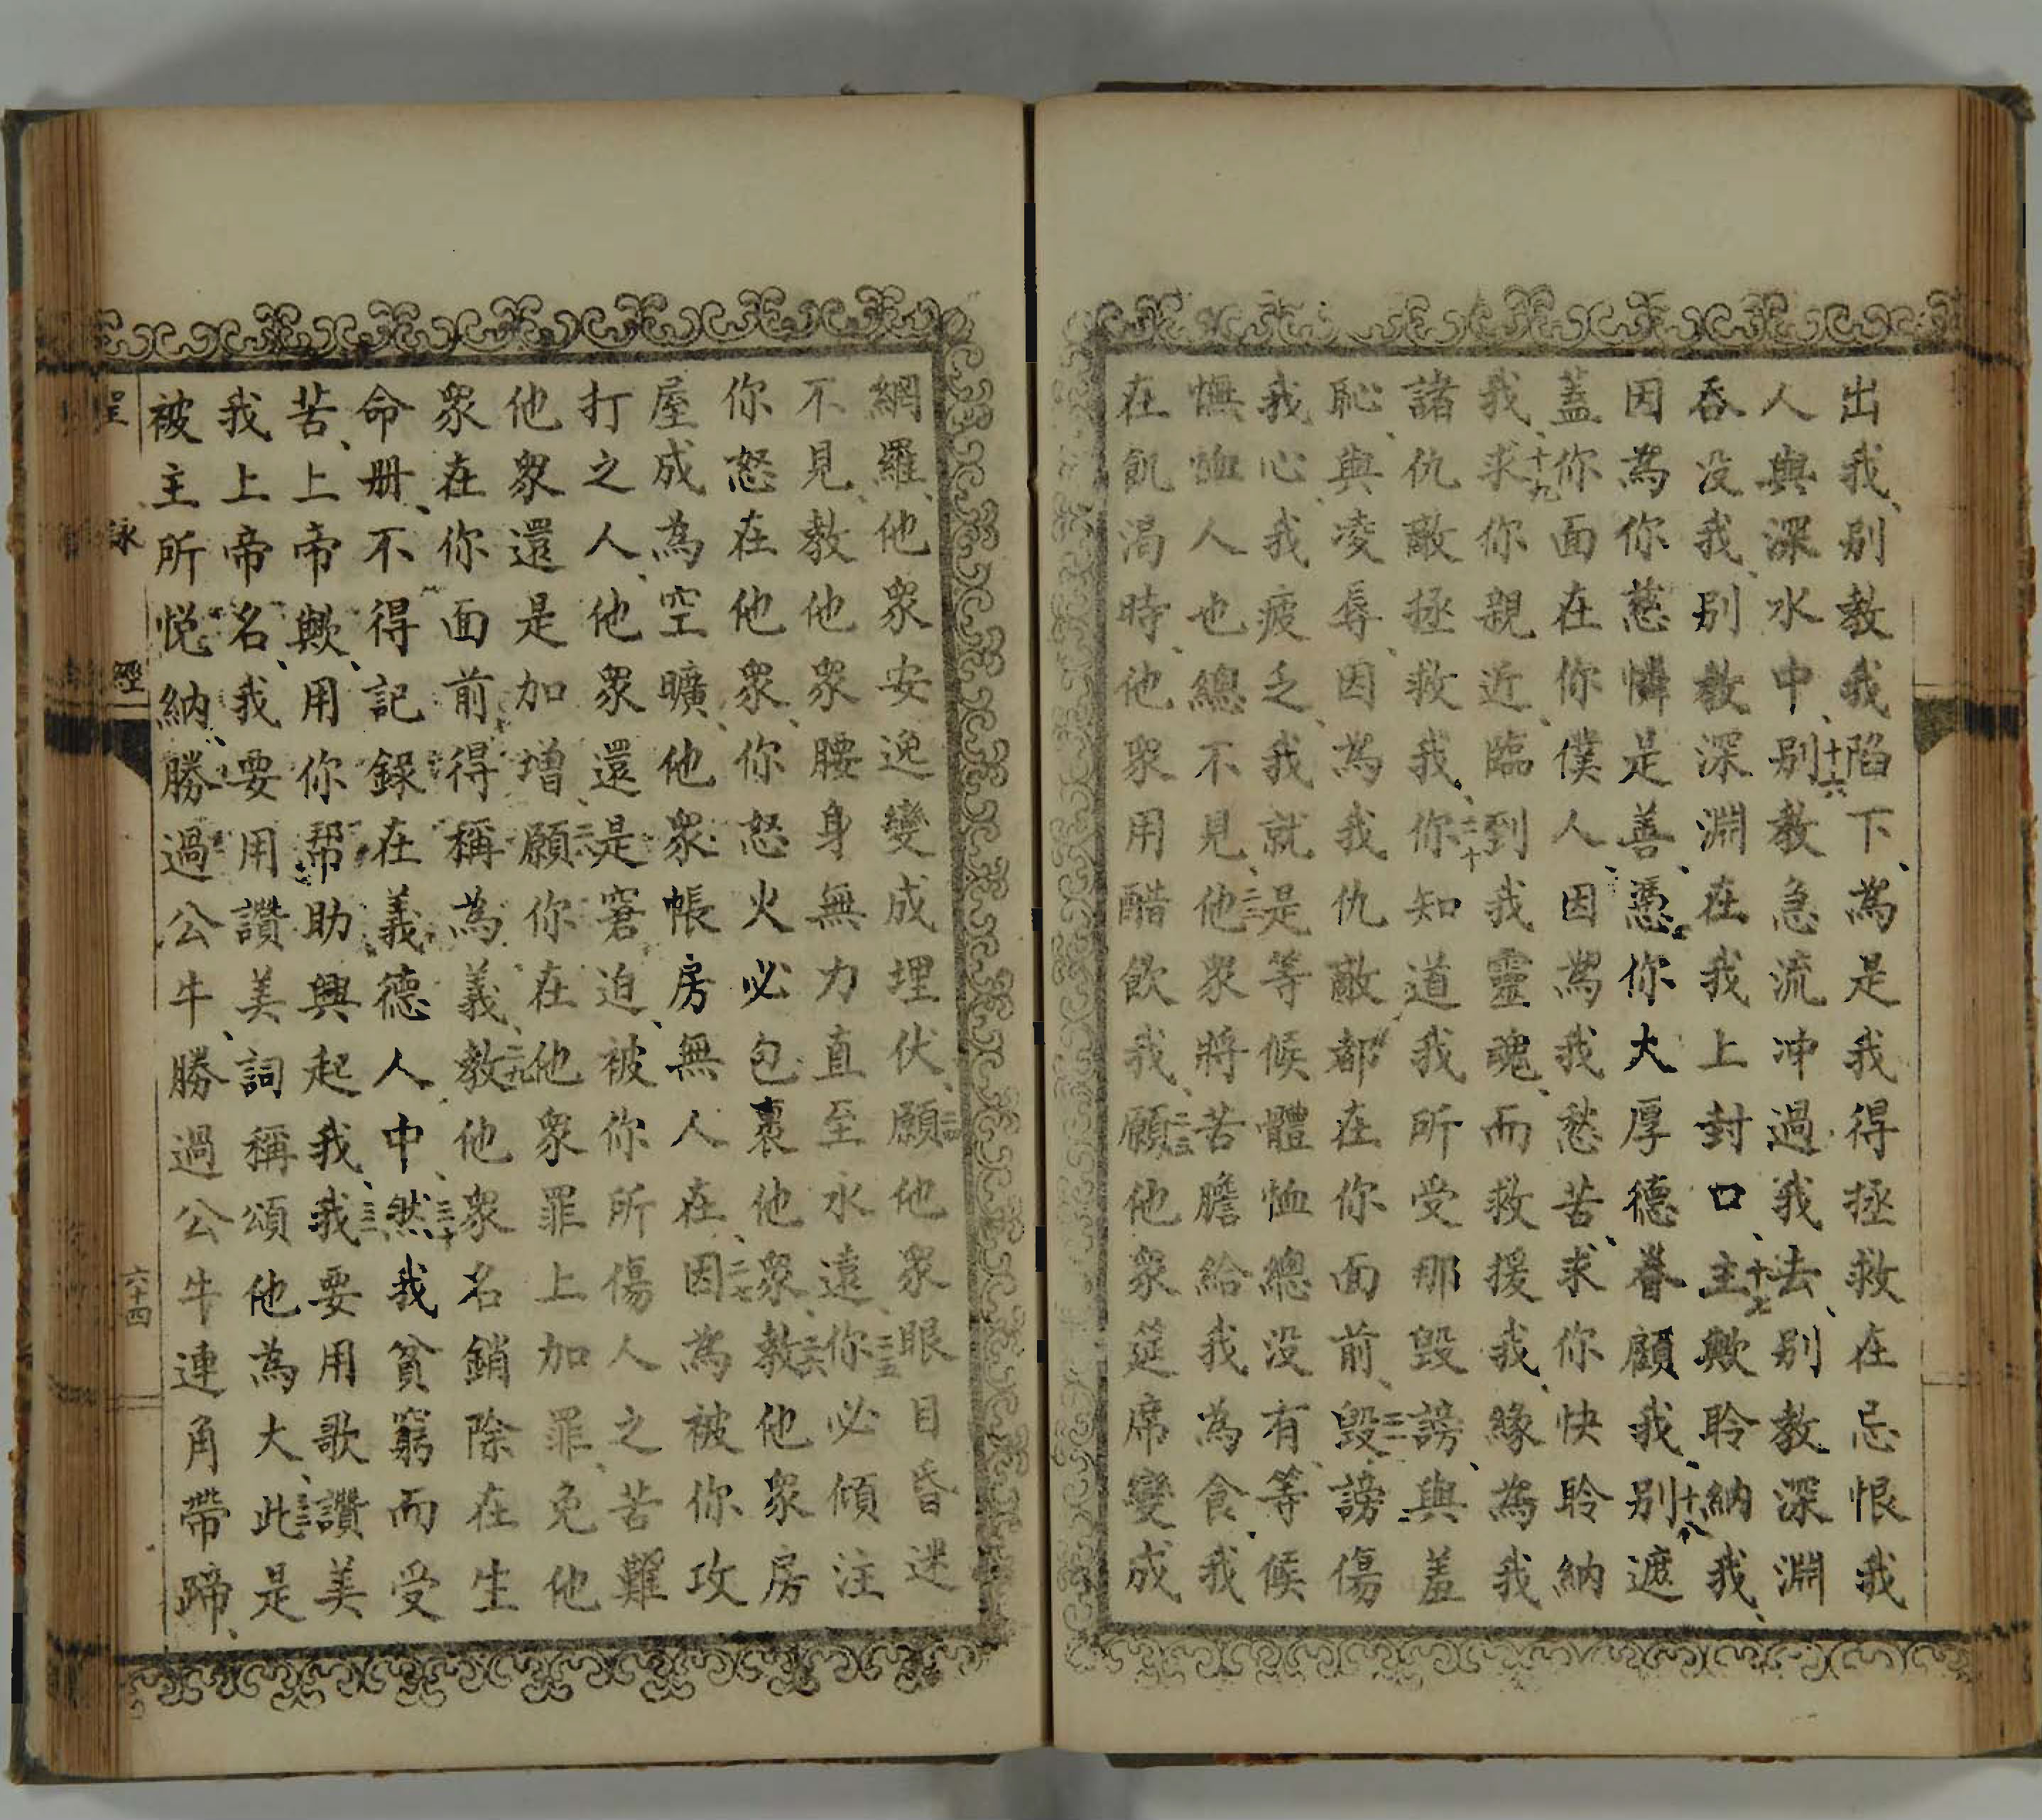 出我、别教我陷下、為是我得拯救在忌恨我
人與深水中、十六别教急流冲過我去、别教深淵
吞没我、别教深淵在我上封口、十七主歟聆納我、
因為你慈憐是善、憑你大厚德眷顧我、十八别遮
蓋你面在你僕人因為我愁苦、求你快聆納
我、十九求你親近、臨到我靈魂、而救援我、緣為我
諸仇敵拯救我、二十你知道我所受那毀謗、與羞
恥、與凌辱、因為我仇敵都在你面前、二一毀謗傷
我心、我疲乏、我就是等候體恤總没有、等候
憮恤人也總不見、二二他眾將苦膽給我為食、我
在飢渴時、他眾用醋飲我、二三願他眾筵席變成
網羅、他眾安逸變成埋伏、二四願他眾眼目昏迷
不見、教他眾腰身無力直至永遠、二五你必傾注
你怒在他眾、你怒火必包裹他眾、二六教他眾房
屋成為空曠、他眾帳房無人在、二七因為被你攻
打之人、他眾還是窘迫、被你所傷人之苦難
他眾還是加增、二八願你在他眾罪上加罪、免他
眾在你面前得稱為義、二九教他眾名銷除在生
命册、不得記錄在義德人中、三十然我貧窮而受
苦、上帝歟、用你幫助興起我、三一我要用歌讚美
我上帝名、我要用讚美詞稱頌他為大、三二此是
被主所悦納、勝過公牛、勝過公牛連角帶蹄、
聖詠經
六十四